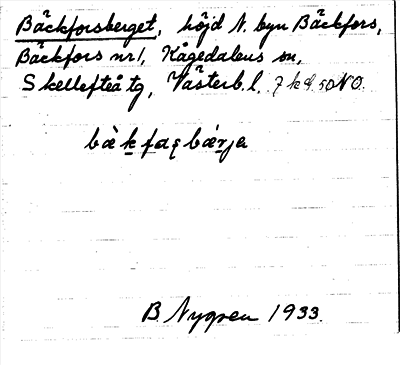 Bäckforsberget, höjd N. byn Bäckfors,
Bäckfors nr 1, Kågedalens sn,
Skellefteå tg, Västerb. l. 7 k d. 50 NO.
B. Nygren 1933.